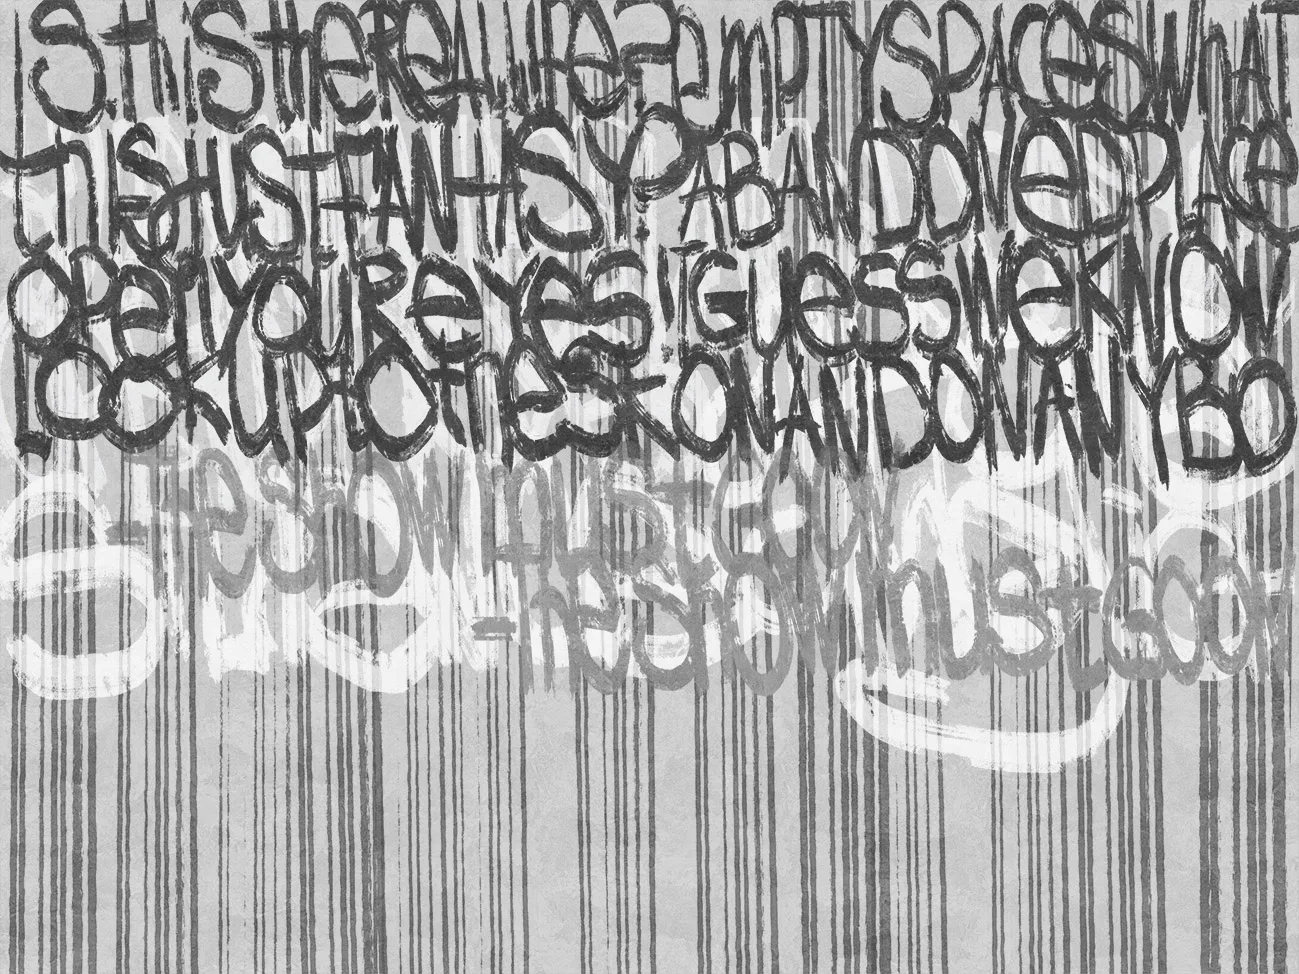 IS THIS THE REAL LIFE? EMPTY SPACES WHAT
THIS JUST FANTASY? ABANDONED PLACE
OPEN YOUR EYES I GUESS WE KNOW
LOOK UP TO THE SK ON AND ON ANYBO
THE SHOW MUST GO ON
THE SHOW MUST GO ON